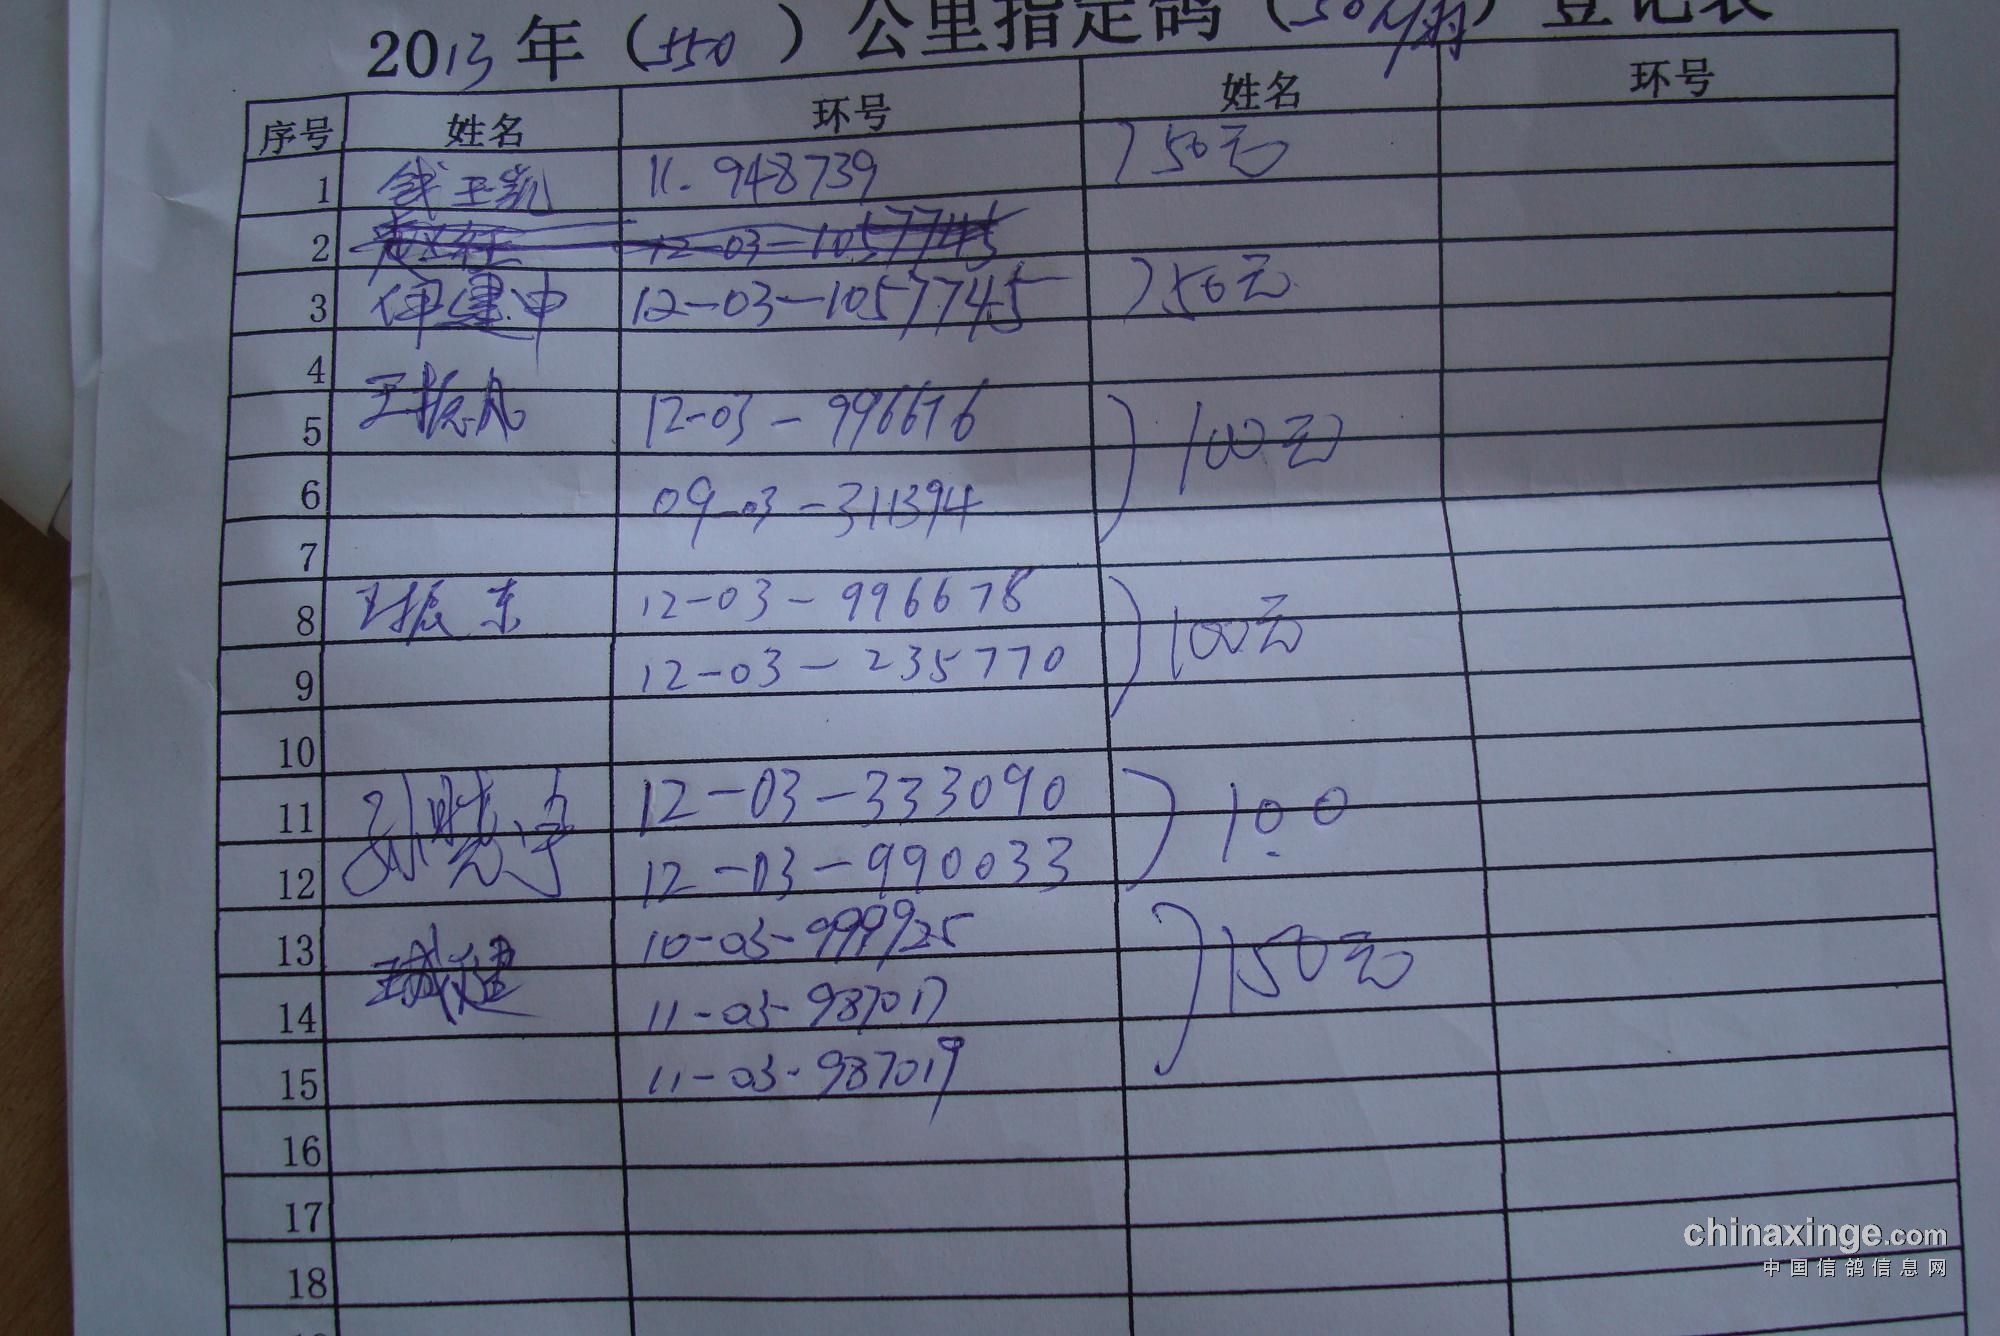 2013年(550)公里指定鸽(50元/羽)登记表
序号 姓名 环号 姓名 环号
1 钱玉凯 11.948739 50元
2 12-03-1057745
3 伊建中 12-03-1057745 50元
4
5 王振凡 12-03-996676 100元
6 09-03-311394
7
8 王振东 12-03-996678 100元
9 12-03-235770
10
11 12-03-333090 100
12 12-03-990033
13 10-03-999925
14 王城建 11-03-987017 150元
15 11-03-987019
16
17
18
chinaxinge.com
中国信鸽信息网